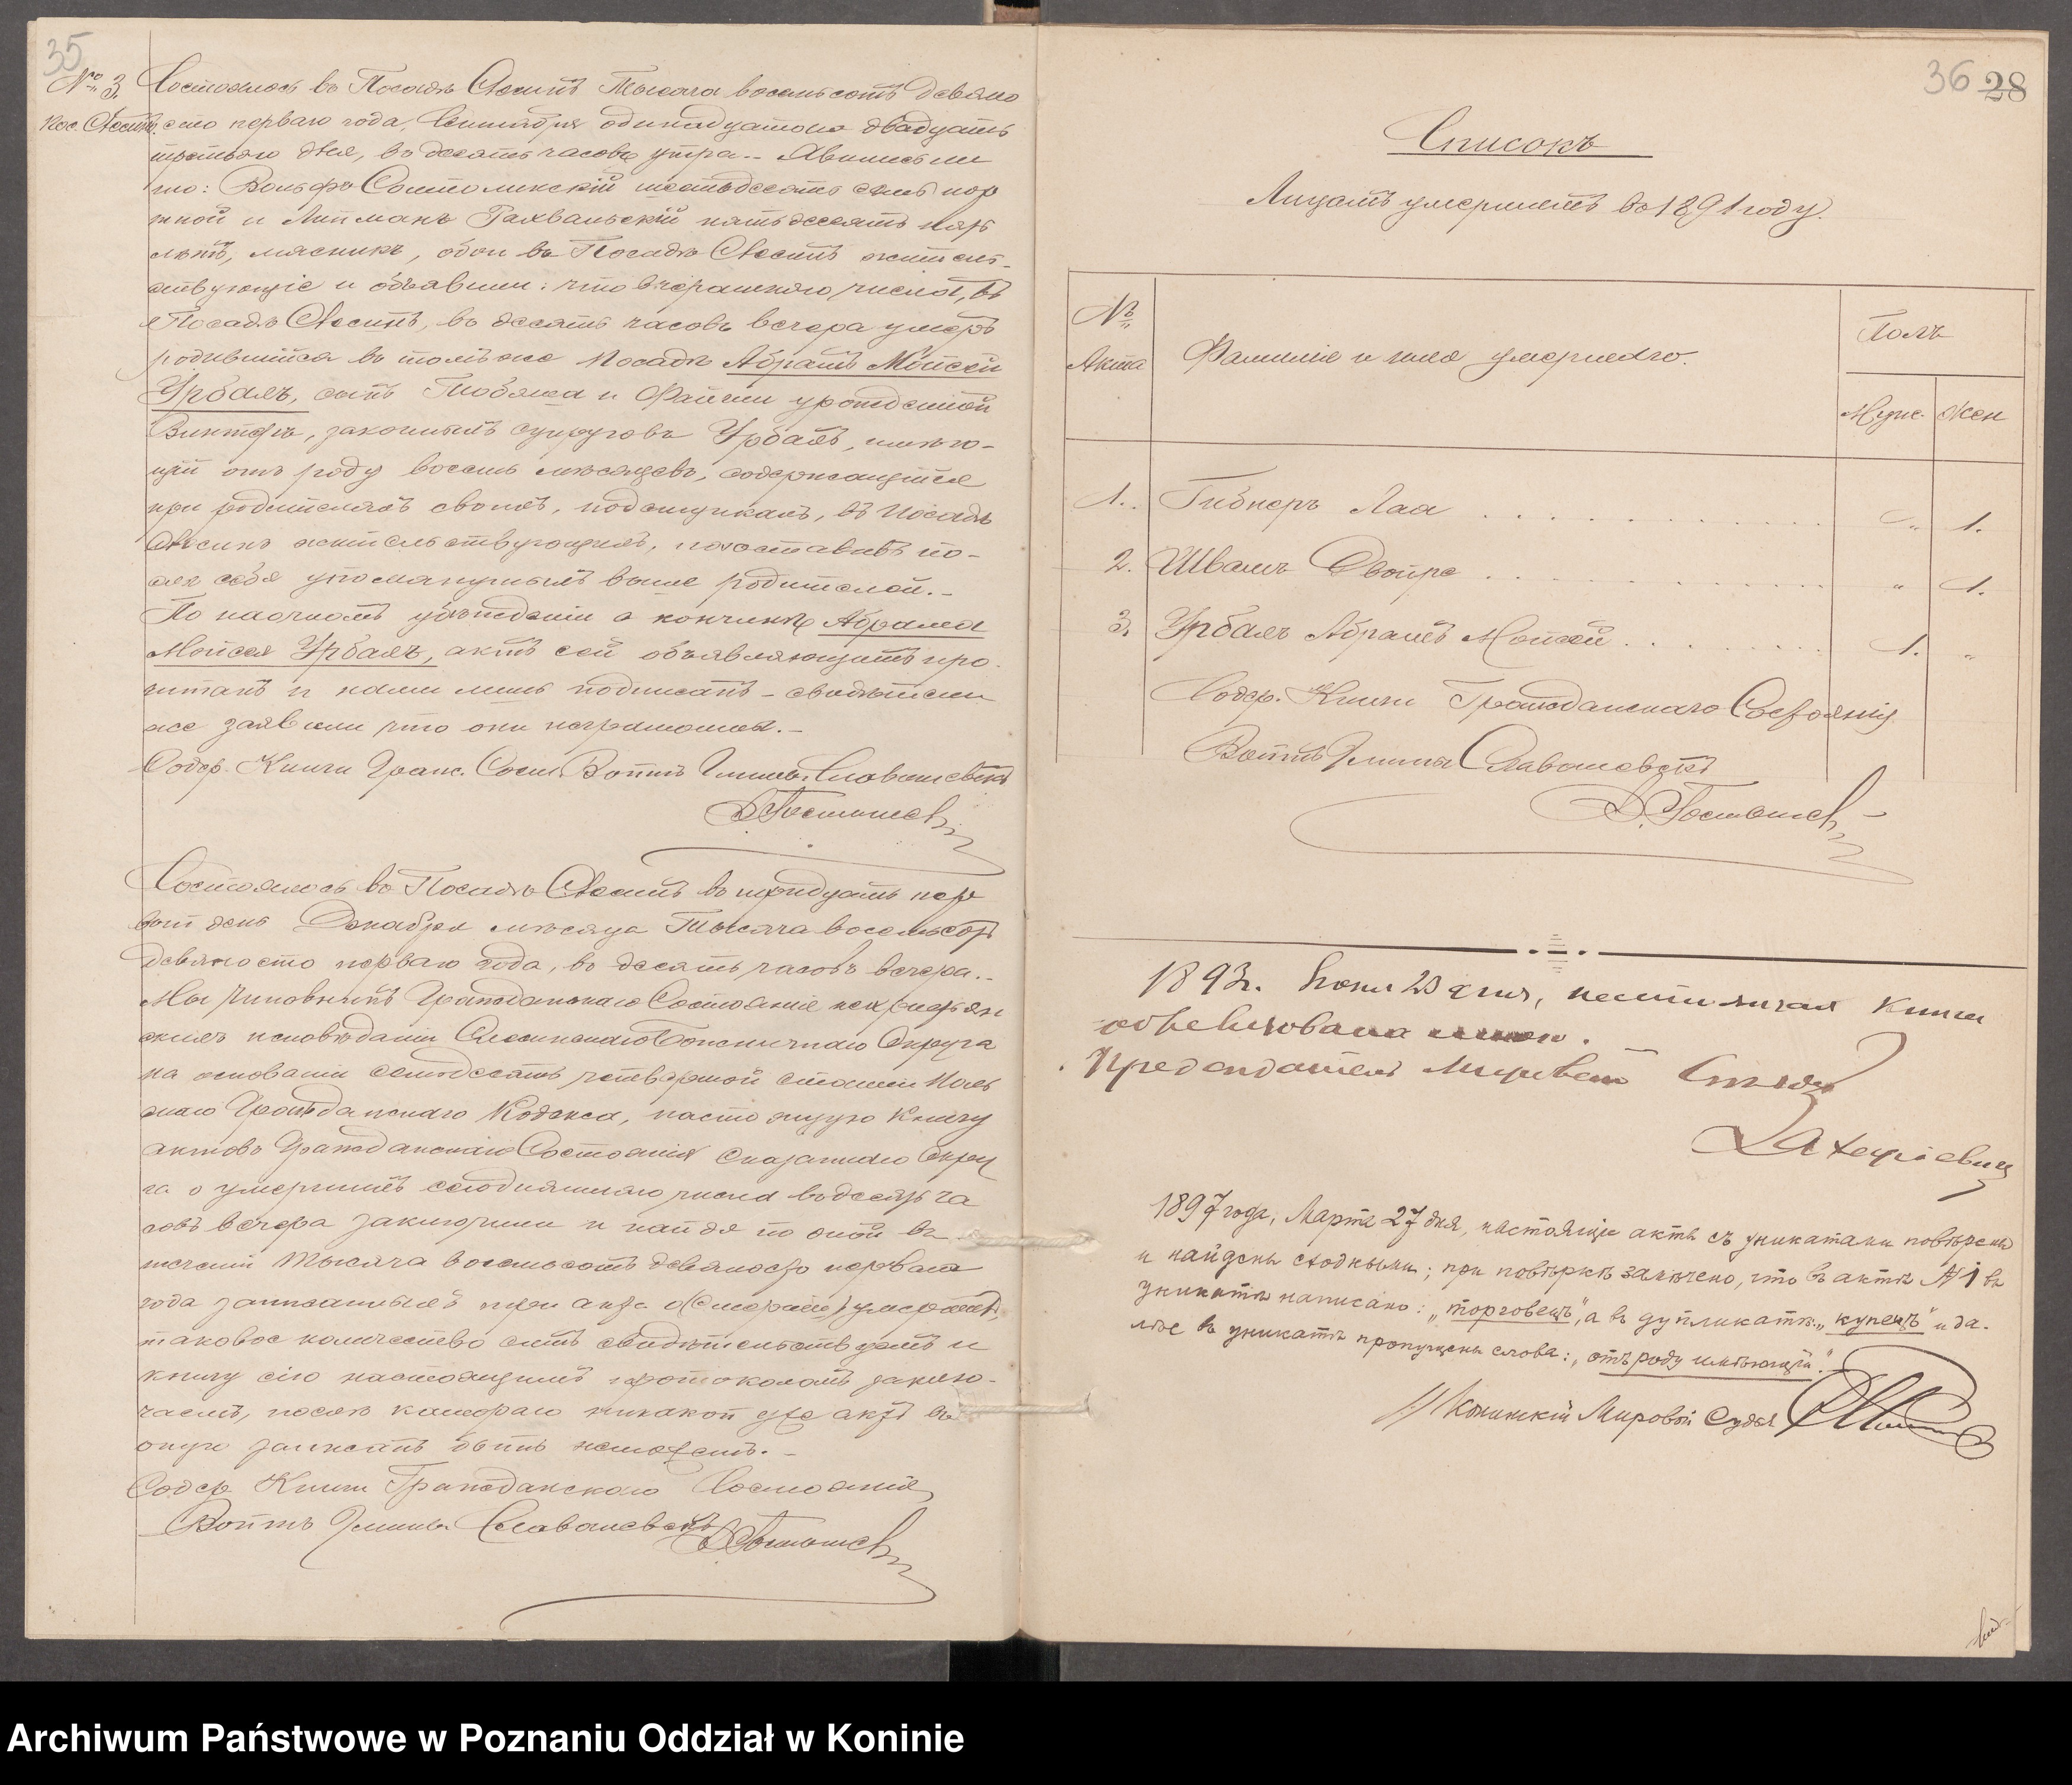 35
№ 3.
Пос. Слесинъ.
Состоялось въ Посадѣ Слесинѣ Тысяча восемьсотъ девяно
сто перваго года, Сентября одинадцатаго двадцать
третьяго дня, въ десять часовъ утра.. Явились ли
но: Вольфъ шестьдесятъ семь пор
тной и Липманъ Рахвальскій пятьдесятъ пять
лѣтъ, мясникъ, обои въ Посадѣ Слесинѣ житель-
ствующіе и объявили: что вчерашняго числа, въ
Посадѣ Слесинѣ, въ десять часовъ вечера умеръ
родившійся въ томъ же Посадѣ Абрамъ Мойсей
Урбахъ, сынъ и Файги урожденной
Винтеръ, законныхъ супруговъ Урбахъ, имѣю-
щій отъ роду восемь мѣсяцевъ, содержащійся
при родителяхъ своихъ, въ Посадѣ
Слесинѣ жительствующихъ, поставивъ по-
слѣ себя упомянутыхъ выше родителей.-
По наочномъ убѣжденіи о кончинѣ Абрама
Мойсея Урбахъ, актъ сей объявляющимъ про-
читанъ и нами лишь подписанъ - свидѣтели
же заявили что они неграмотны.-
Содер. Книги Граж. Сост. Войтъ Гмины Славошевскъ
Состоялось въ Посадѣ Слесинѣ въ тридцать пер
вый день Декабря мѣсяца Тысяча восемьсотъ
девяносто перваго года, въ десять часовъ вечера..
Мы Чиновникъ Гражданскаго Состоянія нехристіян
скихъ исповѣданій Слесинскаго Божничнаго Округа
на основаніи семьдесятъ четвертой статьи Поль
скаго Гражданскаго Кодекса, настоящую Книгу
актовъ Гражданскаго Состоянія сказаннаго Окру
га о умершихъ сегодняшняго числа въ десять ча
совъ вечера заключили и найдя по оной въ
теченіи Тысяча восемьсотъ девяносто перваго
года записанныхъ три акта о умершихъ,
таковое количество симъ свидѣтельствуемъ и
книгу сію настоящимъ протоколомъ заклю-
чаемъ, послѣ котораго никакой уже актъ въ
оную записанъ быть неможетъ.-
Содер. Книги Гражданскаго Состоянія
Войтъ Гмины Славошевскъ
36 28
Списокъ
Лицамъ умершимъ въ 1891 году.
№
Акта
Фамиліе и имя умершаго.
Полъ
Муж. Жен
1. Гибнеръ Лаа " 1.
2. Швамъ Двойра " 1.
3. Урбахъ Абрамъ Мойсей 1. "
Содер. Книги Гражданскаго Состоянія
Войтъ Гмины Славошевскъ
1893г. Іюня 23 дня, настоящая книга
обревизована мною.
Предсѣдатель Мироваго Съѣзда
1897 года, Марта 27 дня, настоящіе акты съ уникатами повѣрены
и найдены сходными; при повѣркѣ замѣчено, что въ актѣ № 1 въ
уникатѣ написано: „торговецъ", а въ дупликатѣ: „купецъ" и да-
лѣе въ уникатѣ пропущены слова: „отъ роду имѣющій."
Конинскій Мировой Судья
Archiwum Państwowe w Poznaniu Oddział w Koninie